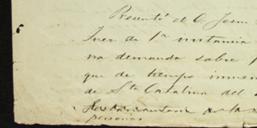 Presentó el C. José
Juez de 1ª instancia
na demanda sobre
que de tiempo inme
de Sta Catalina del
personas